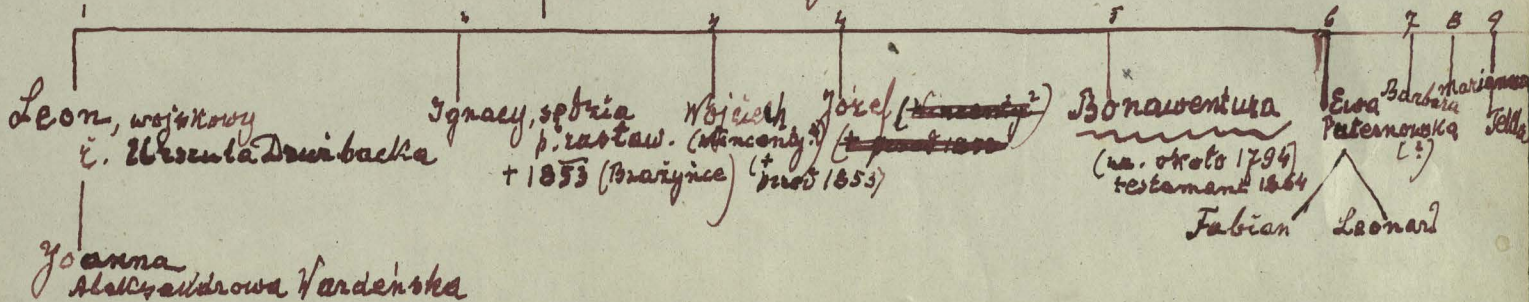 1 2 3 4 5 6 7 8 9
Leon, wojskowy
ż. Urszula Drużbacka
Joanna
Aleksandrowa Wardeńska
Ignacy, sędzia
p. zasław.
+ 1853 (Brażyńce)
Wojciech
(Wincenty?)
(+ przed 1853)
Józef (Wincenty?)
Bonawentura
(ur. około 1794)
testament 1864
Ewa
Paternowska
(?)
Fabian Leonard
Barbara
Marianna
Tekla